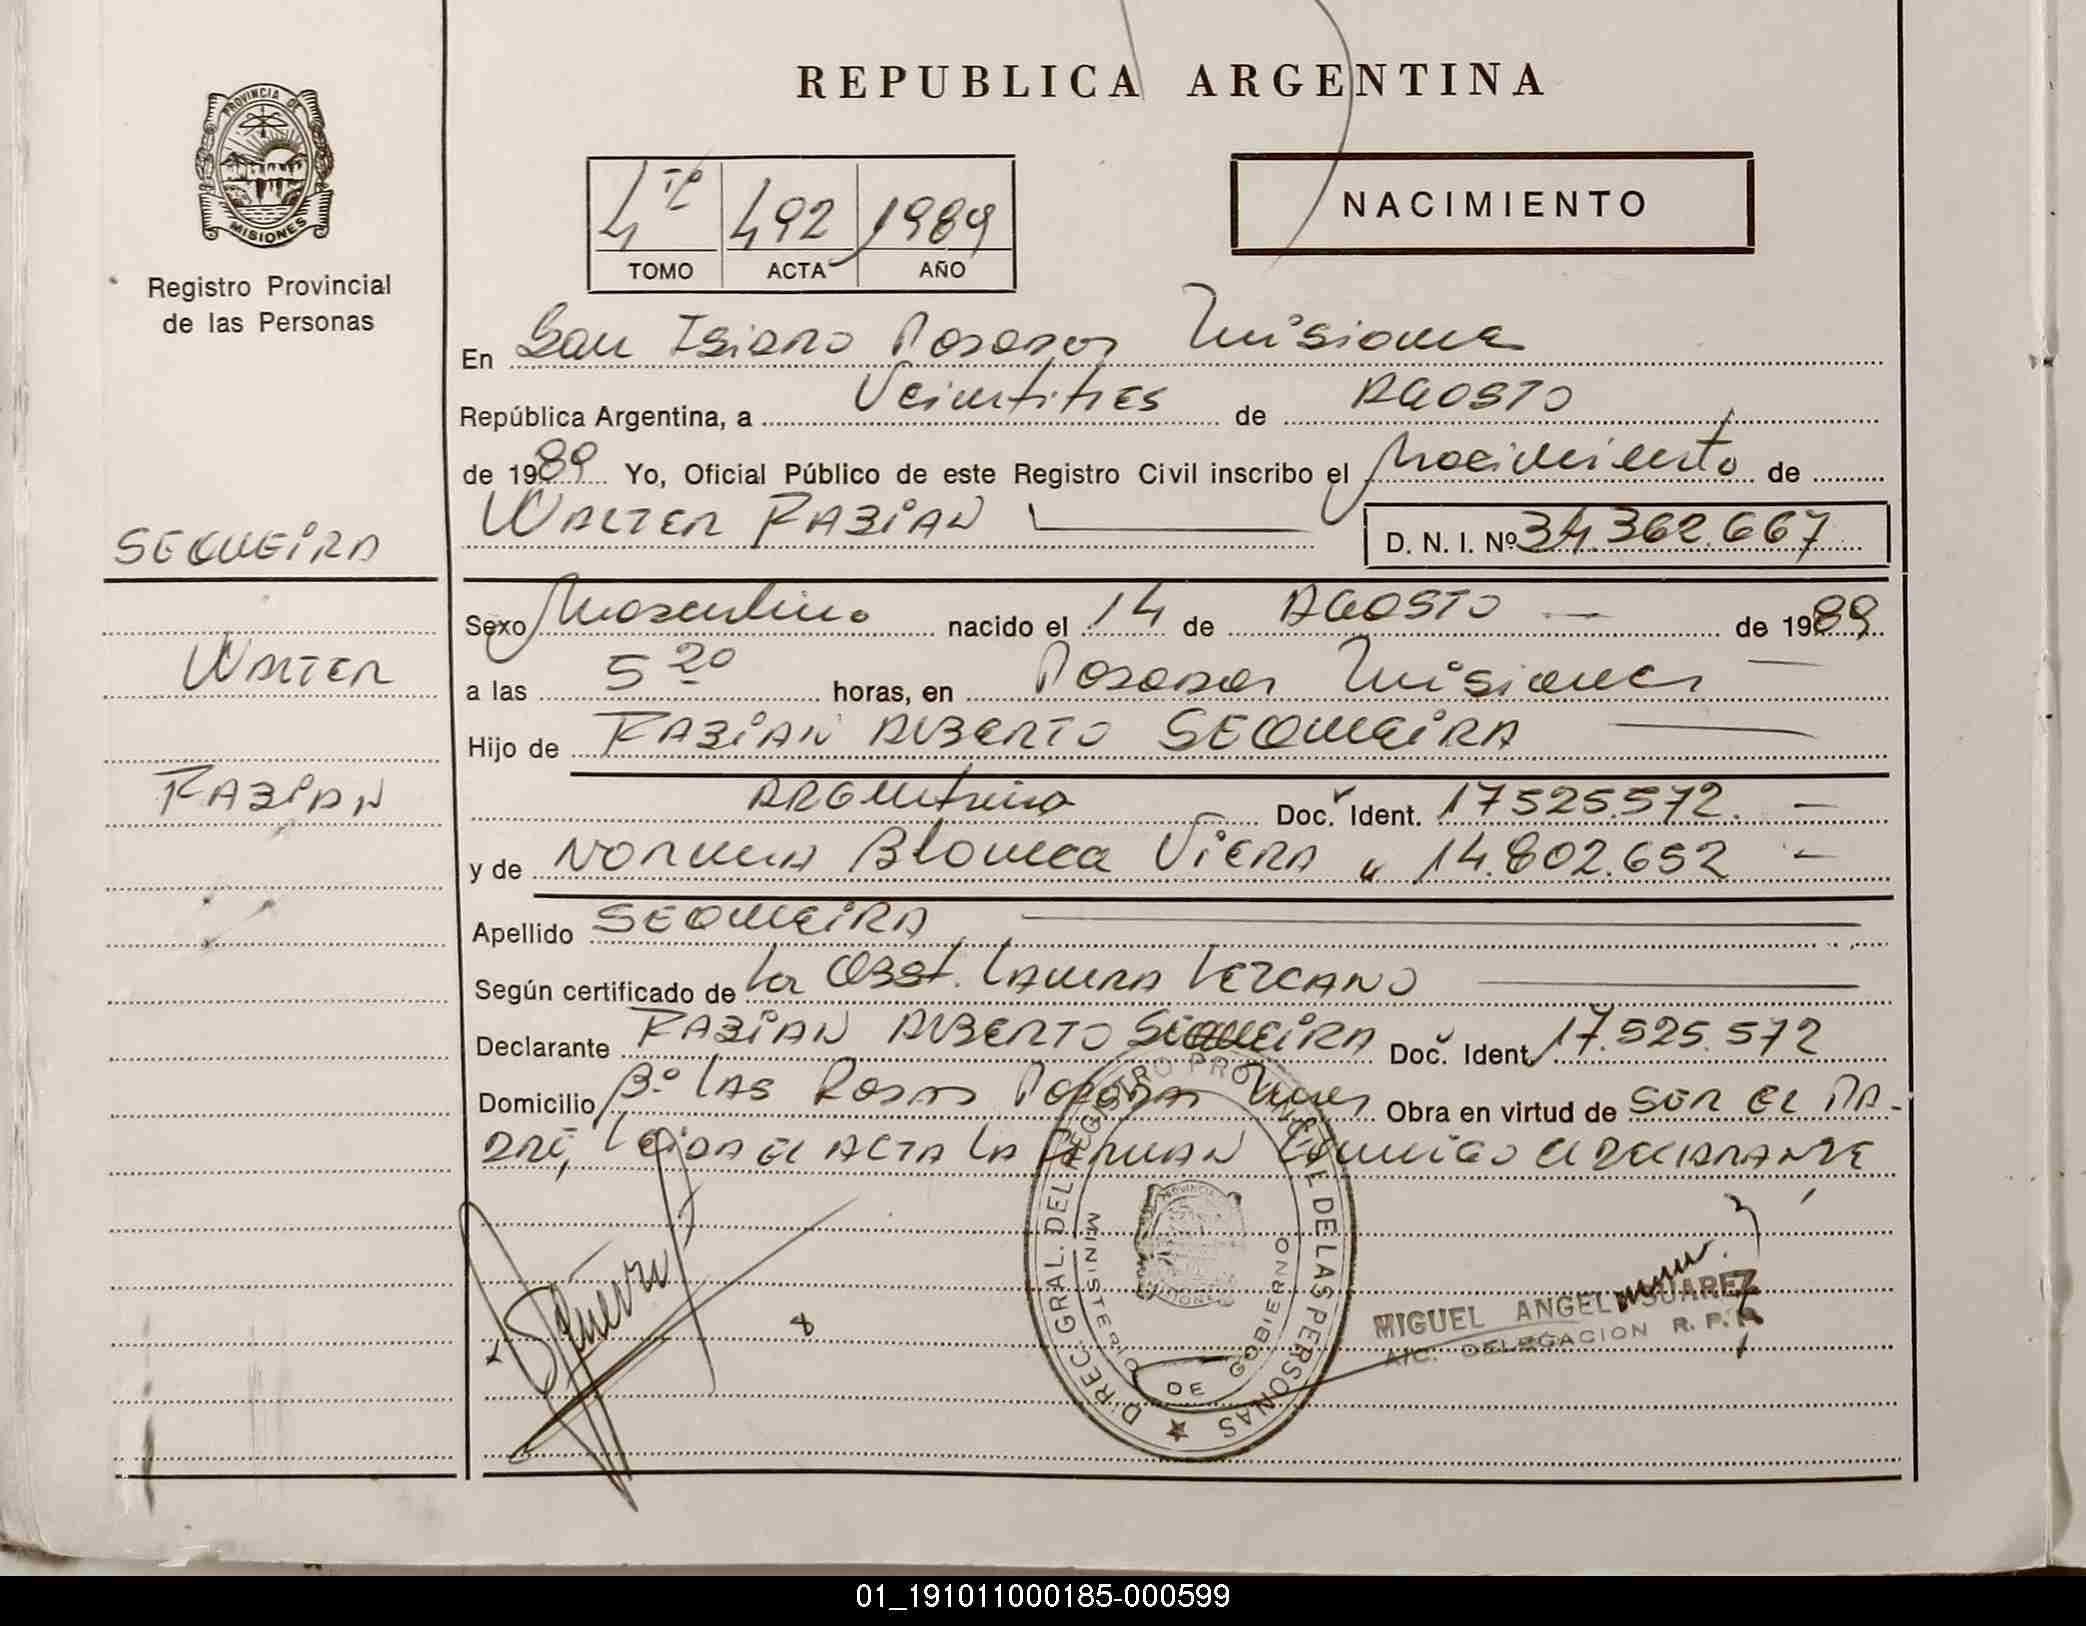 REPUBLICA ARGENTINA
PROVINCIA DE
MISIONES
Registro Provincial
de las Personas
4 492 1989
TOMO ACTA AÑO
NACIMIENTO
En San Isidro Posadas Misiones
República Argentina, a Veintitres de AGOSTO
de 1989 Yo, Oficial Público de este Registro Civil inscribo el Nacimiento de
WALTER FABIAN
D. N. I. Nº 34.362.667
SEQUEIRA
WALTER
FABIAN
Sexo Masculino nacido el 14 de AGOSTO de 1989
a las 5 20 horas, en Posadas Misiones
Hijo de FABIAN ALBERTO SEQUEIRA
ARGentino Doc. Ident. 17525.572.
y de NORMA Blanca ViERA " 14.802.652
Apellido SEQUEIRA
Según certificado de la Obst. LAURA LEZCANO
Declarante FABIAN ALBERTO SEQUEIRA Doc. Ident. 17.525.572
Domicilio Bº LAS Rosas Posadas Mnes Obra en virtud de SER EL PA-
DRE, Leida el ACTA LA FIRMAN Conmigo el DECLARANTE
DIREC. GRAL. DEL REGISTRO PROVINCIAL DE LAS PERSONAS
MINISTERIO DE GOBIERNO
MIGUEL ANGEL SUAREZ
A/C. DELEGACION R. P. P.
01_191011000185-000599